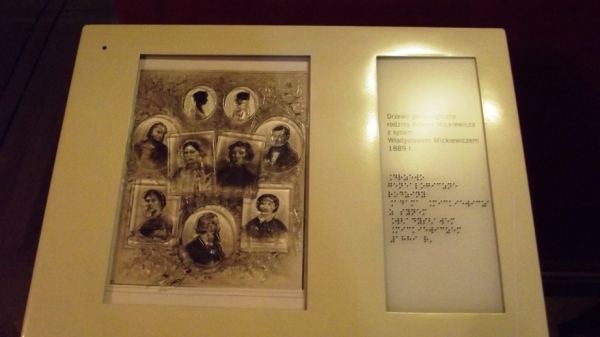 Drzewo genealogiczne
rodziny Adama Mickiewicza
z synem
Władysławem Mickiewiczem
1889 r.